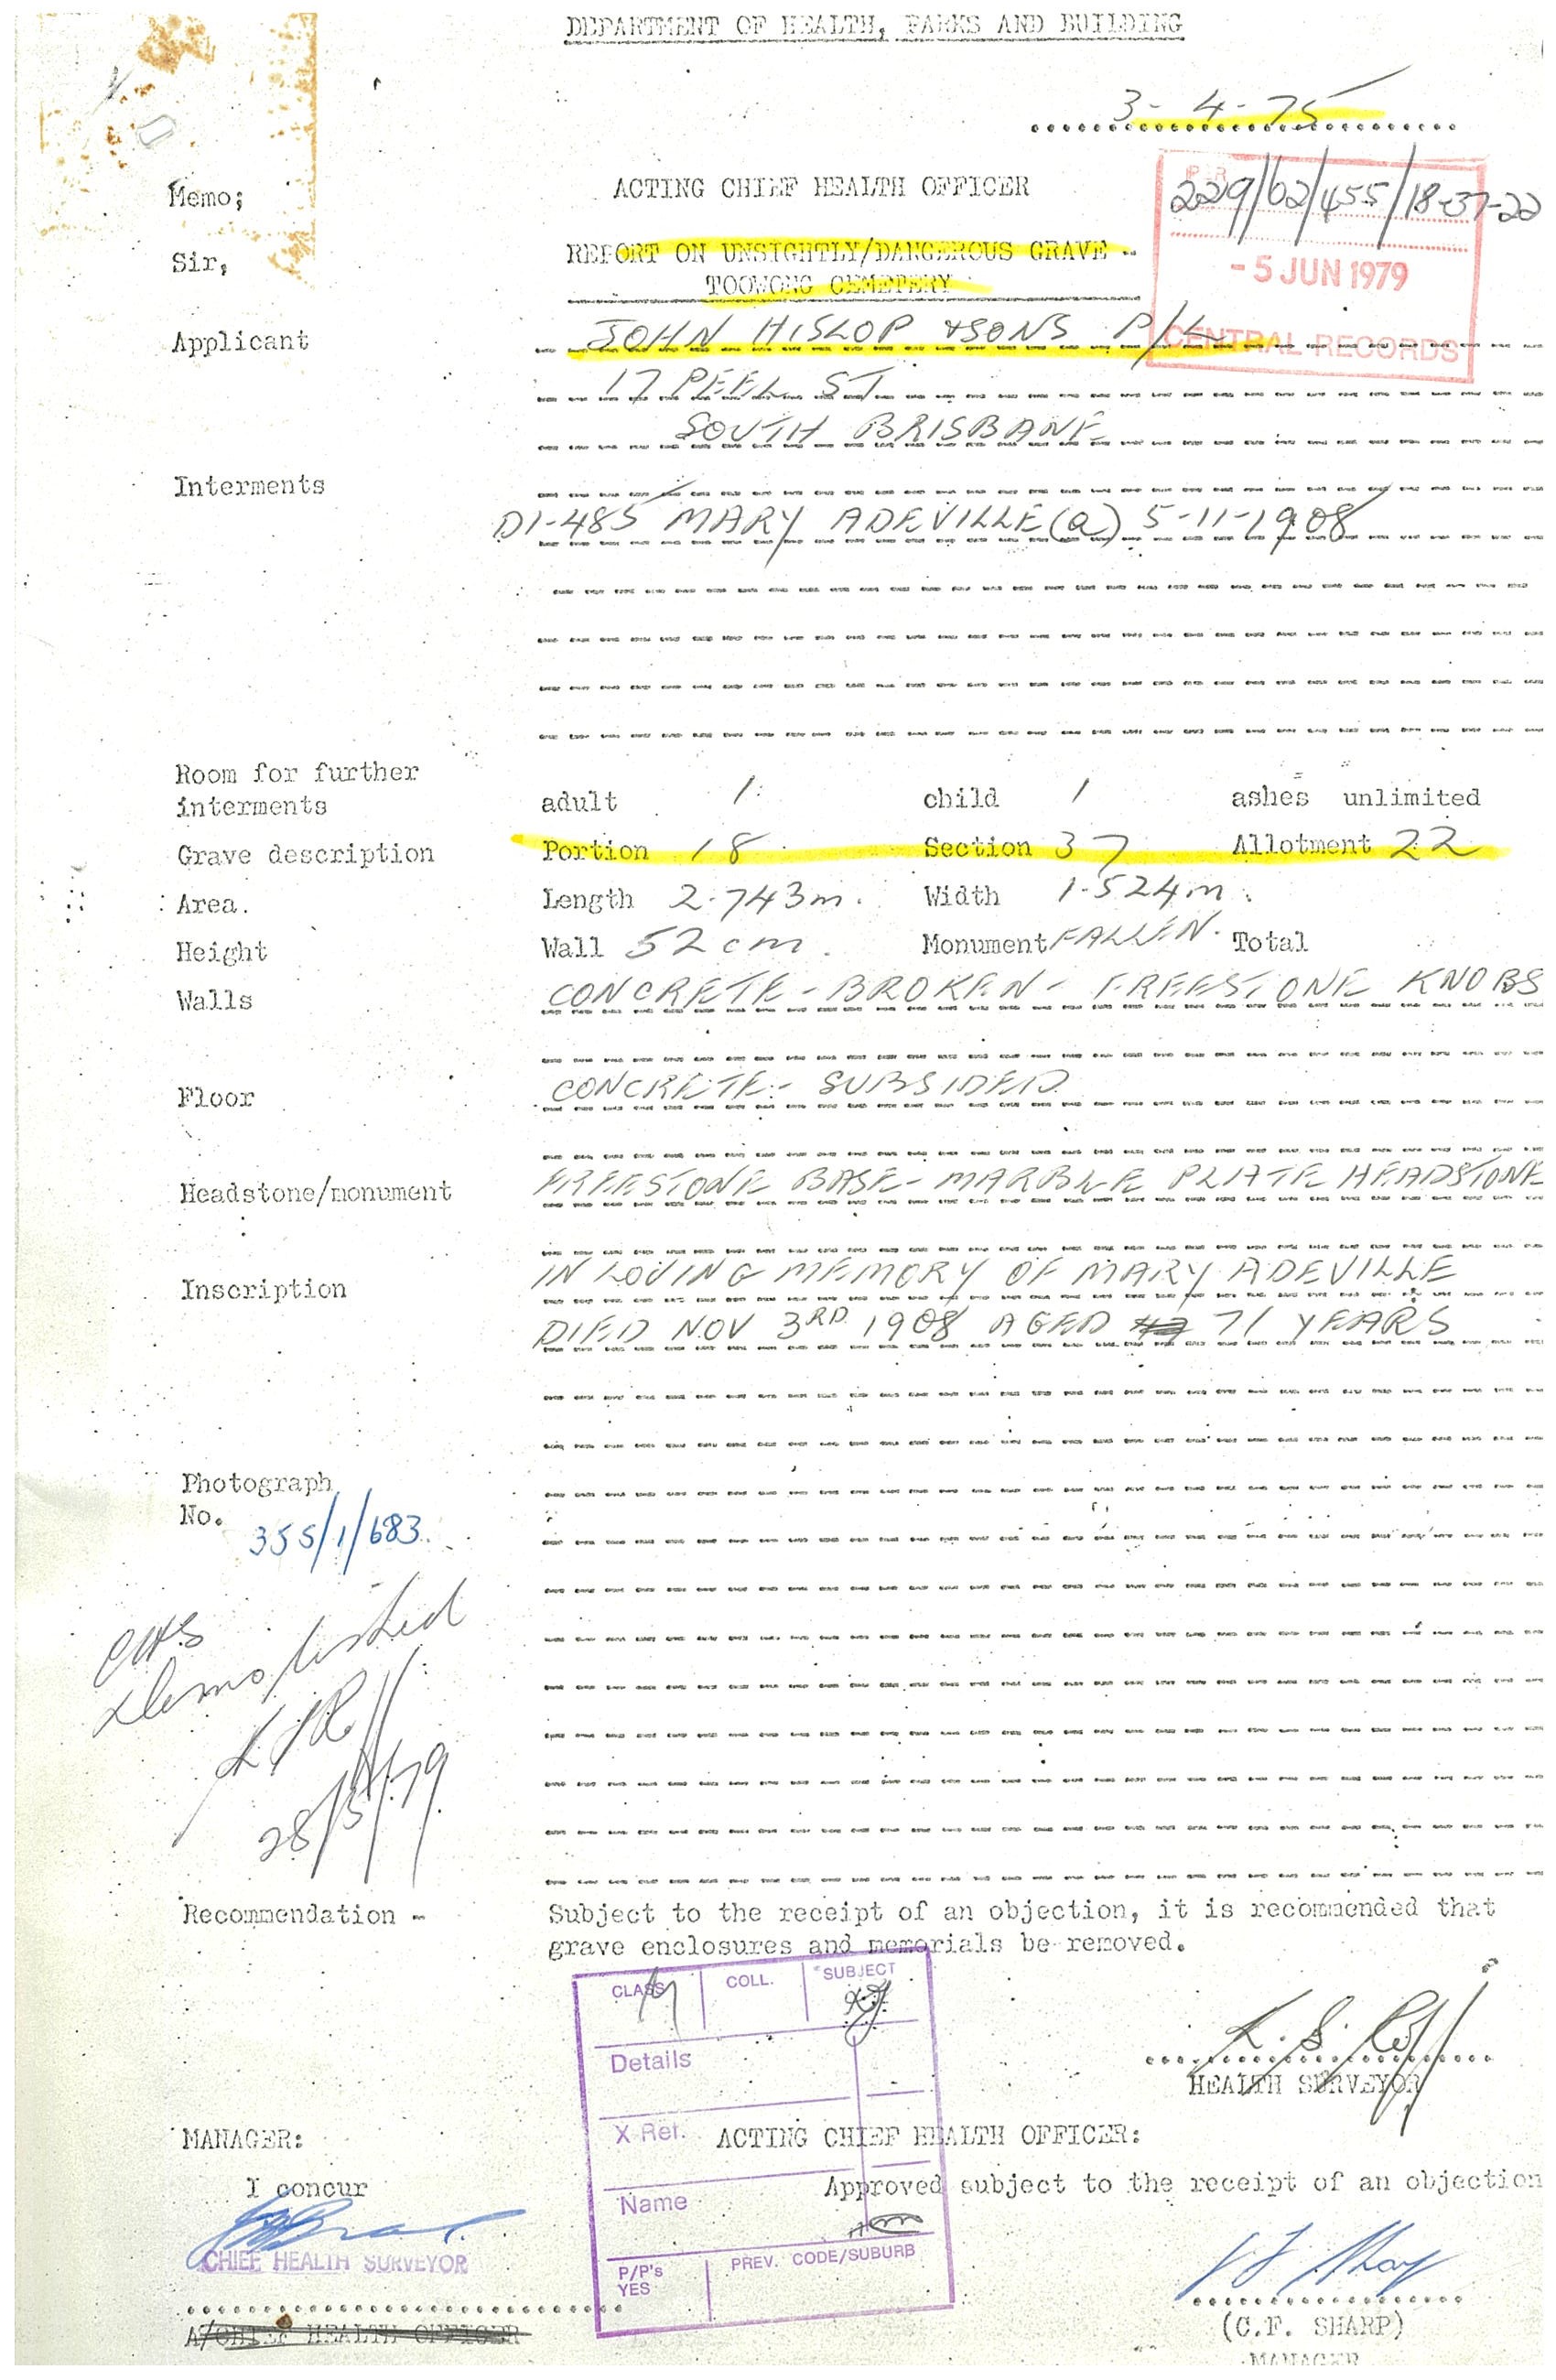 DEPARTMENT OF HEALTH, PARKS AND BUILDING
3-4-75
Memo;
ACTING CHIEF HEALTH OFFICER
229/62/455/18-37-22
Sir,
REPORT ON UNSIGHTLY/DANGEROUS GRAVE -
TOOWONG CEMETERY
- 5 JUN 1979
CENTRAL RECORDS
Applicant
JOHN HISLOP & SONS P/L
17 PEEL ST
SOUTH BRISBANE
Interments
D1-485 MARY ADEVILLE (a) 5-11-1908
Room for further
interments adult 1 child 1 ashes unlimited
Grave description Portion 18 Section 37 Allotment 22
Area. Length 2.743m. Width 1.524m.
Height Wall 52 cm. Monument FALLEN. Total
Walls CONCRETE - BROKEN - FREESTONE KNOBS
Floor CONCRETE - SUBSIDED
Headstone/monument FREESTONE BASE - MARBLE PLATE HEADSTONE
Inscription IN LOVING MEMORY OF MARY ADEVILLE
DIED NOV 3RD 1908 AGED 71 YEARS
Photograph
No. 355/1/683.
demolished
28/5/79
Recommendation - Subject to the receipt of an objection, it is recommended that
grave enclosures and memorials be removed.
CLASS COLL. SUBJECT
Details
HEALTH SURVEYOR
X Ref.
MANAGER: ACTING CHIEF HEALTH OFFICER:
I concur Approved subject to the receipt of an objection
Name
CHIEF HEALTH SURVEYOR
P/P's
YES
PREV. CODE/SUBURB
A/CHIEF HEALTH OFFICER
(C.F. SHARP)
MANAGER